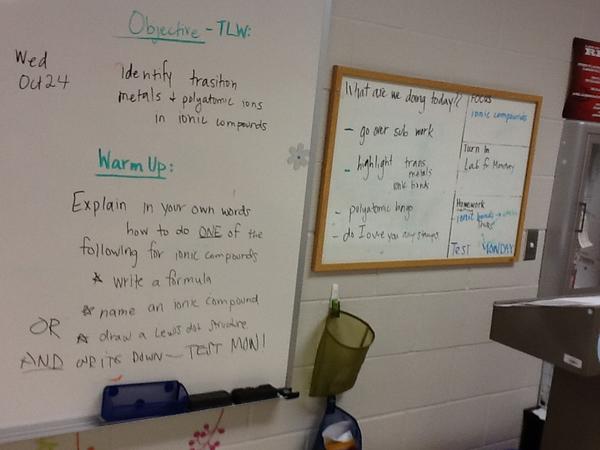 Objective - TLW:
Wed
Oct 24
Identify trasition
metals + polyatomic ions
in ionic compounds
Warm Up:
Explain in your own words
how to do ONE of the
following for ionic compounds
* write a formula
* name an ionic compound
OR * draw a Lewis dot structure
AND write down - TEST MON!
What are we doing today?
- go over sub work
- highlight trans
metals
ionic bonds
- polyatomic bingo
- do I owe you any stamps
FOCUS
ionic compounds
Turn In
Lab for Monday
Homework
ionic bonds
TEST MONDAY